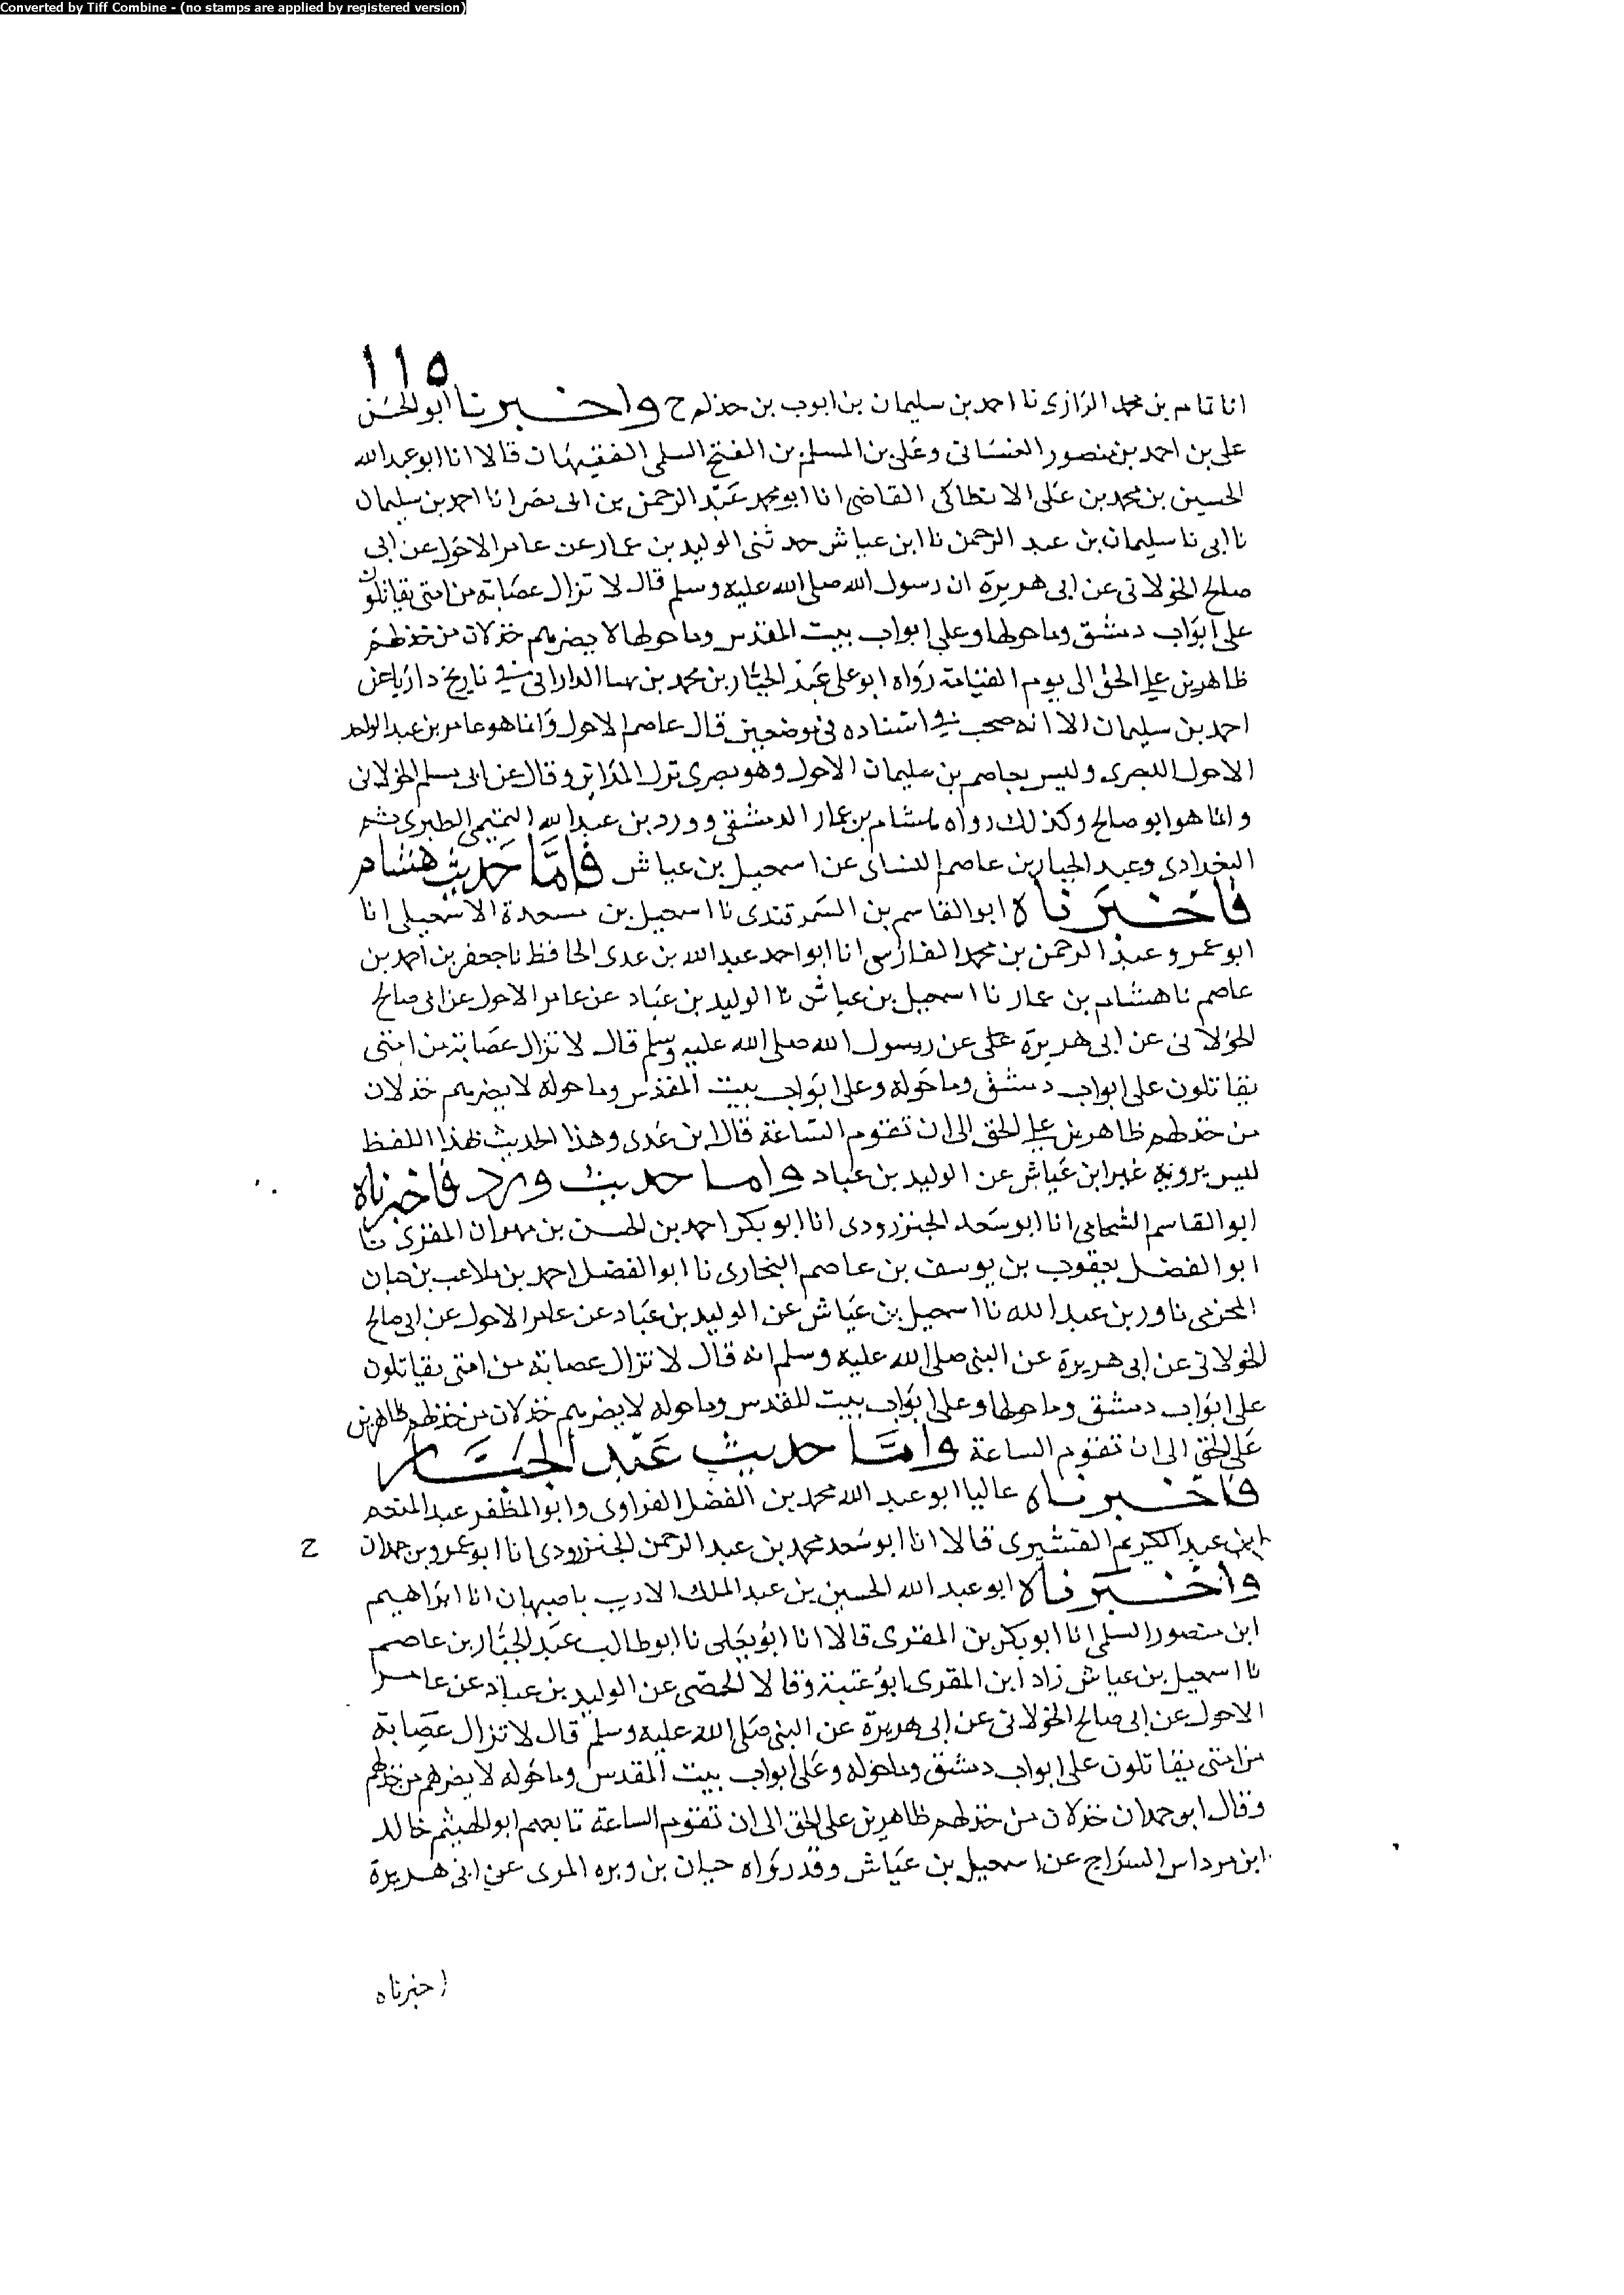 Converted by Tiff Combine - (no stamps are applied by registered version)
١١٥
انا تمام بن محمد الرازى نا احمد بن سليمان بن ايوب بن حذلم ح واخبرنا ابو الحسن
على بن احمد بن منصور الغسانى وعلى بن المسلم بن الفتح السلمى الفقيهان قالا انا ابو عبد الله
الحسين بن محمد بن على الانطاكى القاضى انا ابو محمد عبد الرحمن بن ابى نصر انا احمد بن سليمان
نا ابى نا سليمان بن عبد الرحمن نا ابن عياش حدثنى الوليد بن عمار عن عامر الاحول عن ابى
صالح الخولانى عن ابى هريرة ان رسول الله صلى الله عليه وسلم قال لا تزال عصابة من امتى يقاتلون
على ابواب دمشق وما حولها وعلى ابواب بيت المقدس وما حولها لا يضرهم خذلان من خذلهم
ظاهرين على الحق الى يوم القيامة رواه ابو على عبد الجبار بن محمد بن مهنا الدارانى فى تاريخ داريا عن
احمد بن سليمان الا انه صحب فى اسناده فى موضعين قال عاصم الاحول وانما هو عامر بن عبد الواحد
الاحول البصرى وليس بعاصم بن سليمان الاحول وهو بصرى نزل المداين وقال عن ابى مسلم الخولانى
وانما هو ابو صالح وكذلك رواه هشام بن عمار الدمشقى وورد بن عبد الله التميمى الطبرى ثم
البغدادى وعبد الجبار بن عاصم النسائى عن اسمعيل بن عياش فاما حديث هشام
فاخبرناه ابو القاسم بن السمرقندى نا اسمعيل بن مسعدة الاسمعيلى انا
ابو عمرو عبد الرحمن بن محمد الفارسى انا ابو احمد عبد الله بن عدى الحافظ نا جعفر بن احمد بن
عاصم نا هشام بن عمار نا اسمعيل بن عياش نا الوليد بن عباد عن عامر الاحول عن ابى صالح
الخولانى عن ابى هريرة عن رسول الله صلى الله عليه وسلم قال لا تزال عصابة من امتى
يقاتلون على ابواب دمشق وما حوله وعلى ابواب بيت المقدس وما حوله لا يضرهم خذلان
من خذلهم ظاهرين على الحق الى ان تقوم الساعة قال ابن عدى وهذا الحديث بهذا اللفظ
ليس يرويه غير ابن عياش عن الوليد بن عباد واما حديث ورد فاخبرناه
ابو القاسم الشحامى انا ابو سعد الجنزرودى انا ابو بكر احمد بن الحسن بن مهران المقرى نا
ابو الفضل يعقوب بن يوسف بن عاصم البخارى نا ابو الفضل احمد بن ملاعب بن حبان
المخرمى نا ورد بن عبد الله نا اسمعيل بن عياش عن الوليد بن عباد عن عامر الاحول عن ابى صالح
الخولانى عن ابى هريرة عن النبى صلى الله عليه وسلم انه قال لا تزال عصابة من امتى يقاتلون
على ابواب دمشق وما حولها وعلى ابواب بيت المقدس وما حوله لا يضرهم خذلان من خذلهم ظاهرين
على الحق الى ان تقوم الساعة واما حديث عبد الجبار
فاخبرناه عاليا ابو عبد الله محمد بن الفضل الفراوى وابو المظفر عبد المنعم
ابن عبد الكريم القشيرى قالا انا ابو سعد محمد بن عبد الرحمن الجنزرودى انا ابو عمرو بن حمدان ح
واخبرناه ابو عبد الله الحسين بن عبد الملك الاديب باصبهان انا ابراهيم
ابن منصور السلمى انا ابو بكر بن المقرى قالا انا ابو يعلى نا ابو طالب عبد الجبار بن عاصم
نا اسمعيل بن عياش زاد ابن المقرى ابو عتبة وقالا الحمصى عن الوليد بن عباد عن عامر
الاحول عن ابى صالح الخولانى عن ابى هريرة عن النبى صلى الله عليه وسلم قال لا تزال عصابة
من امتى يقاتلون على ابواب دمشق وما حوله وعلى ابواب بيت المقدس وما حوله لا يضرهم من خذلهم
وقال ابو حمدان خذلان من خذلهم ظاهرين على الحق الى ان تقوم الساعة تابعهم ابو الهيثم خالد
ابن مرداس السراج عن اسمعيل بن عياش وقد رواه حبان بن وبره المرى عن ابى هريرة
اخبرناه